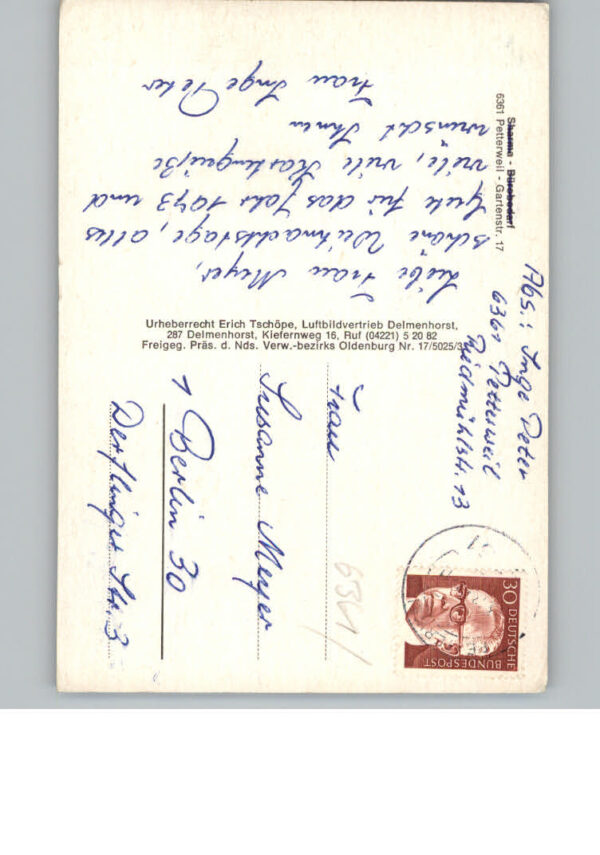 Sharma - Bürobedarf
6361 Petterweil - Gartenstr. 17
Liebe Frau Meyer,
schöne Weihnachtstage, alles
Gute für das Jahr 1973 und
viele, viele Kartengrüße
wünscht Ihnen
Frau Inge Peter
Urheberrecht Erich Tschöpe, Luftbildvertrieb Delmenhorst,
287 Delmenhorst, Kiefernweg 16, Ruf (04221) 5 20 82
Freigeg. Präs. d. Nds. Verw.-bezirks Oldenburg Nr. 17/5025/3
Abs.: Inge Peter
6361 Petterweil
Riedmühlstr. 13
30
DEUTSCHE
BUNDESPOST
Frau
Susanne Meyer
1 Berlin 30
Derflinger Str. 3